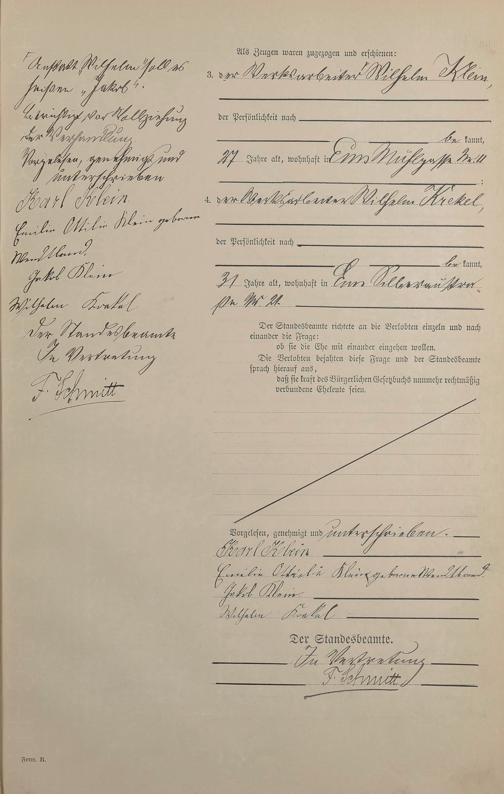 Anstatt Wilhelm soll es
heißen „Jakob“.
Berichtigt vor Vollziehung
der Verhandlung
Vorgelesen, genehmigt und
unterschrieben
Karl Klein
Emilie Ottilie Klein geborene
Wendland.
Jakob Klein
Wilhelm Krekel
Der Standesbeamte
In Vertretung
F. Schmitt
Als Zeugen waren zugezogen und erschienen:
3. der Werksarbeiter Wilhelm Klein,
der Persönlichkeit nach
be kannt,
27 Jahre alt, wohnhaft in Ems Mühlgasse No. 11
;
4. der Werksarbeiter Wilhelm Krekel,
der Persönlichkeit nach
be kannt,
31 Jahre alt, wohnhaft in Ems Silberaustra-
ße No 21.
Der Standesbeamte richtete an die Verlobten einzeln und nach
einander die Frage:
ob sie die Ehe mit einander eingehen wollen.
Die Verlobten bejahten diese Frage und der Standesbeamte
sprach hierauf aus,
daß sie kraft des Bürgerlichen Gesetzbuchs nunmehr rechtmäßig
verbundene Eheleute seien.
Vorgelesen, genehmigt und unterschrieben.
Karl Klein
Emilie Ottilie Klein geborene Wendland.
Jakob Klein
Wilhelm Krekel
Der Standesbeamte.
In Vertretung
F. Schmitt
Form. B.